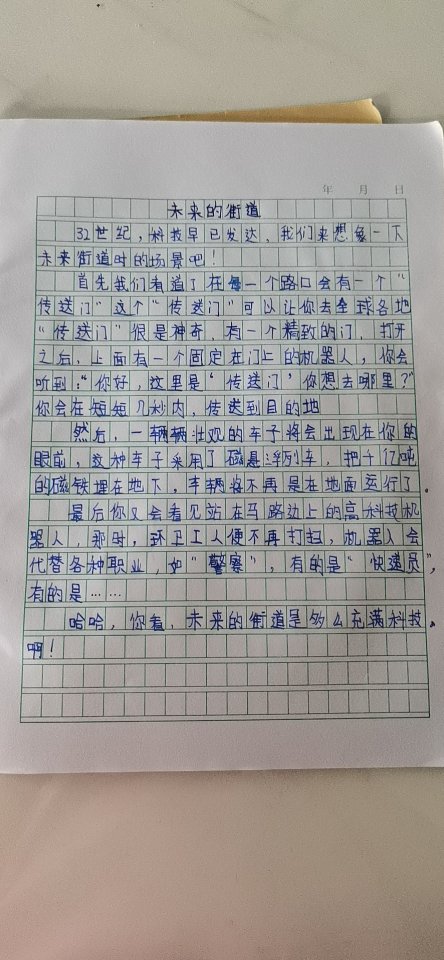 年 月 日
未来的街道
32世纪，科技早已发达，我们来想象一下
未来街道时的场景吧！
首先我们看道了在每一个路口会有一个“
传送门”这个“传送门”可以让你去全球各地
“传送门”很是神奇，有一个精致的门，打开
之后，上面有一个固定在门上的机器人，你会
听到：“你好，这里是‘传送门’你想去哪里？”
你会在短短几秒内，传送到目的地
然后，一辆辆壮观的车子将会出现在你的
眼前，这种车子采用了磁悬浮列车，把千亿吨
的磁铁埋在地下，车辆将不再是在地面运行了。
最后你又会看见站在马路边上的高科技机
器人，那时，环卫工人便不再打扫，机器人会
代替各种职业，如“警察”，有的是“快递员”，
有的是……
哈哈，你看，未来的街道是多么充满科技。
啊！